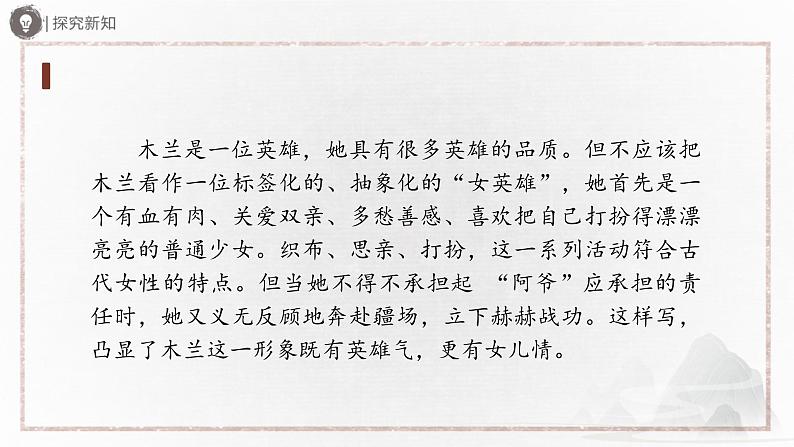 探究新知
木兰是一位英雄，她具有很多英雄的品质。但不应该把
木兰看作一位标签化的、抽象化的“女英雄”，她首先是一
个有血有肉、关爱双亲、多愁善感、喜欢把自己打扮得漂漂
亮亮的普通少女。织布、思亲、打扮，这一系列活动符合古
代女性的特点。但当她不得不承担起 “阿爷”应承担的责
任时，她又义无反顾地奔赴疆场，立下赫赫战功。这样写，
凸显了木兰这一形象既有英雄气，更有女儿情。